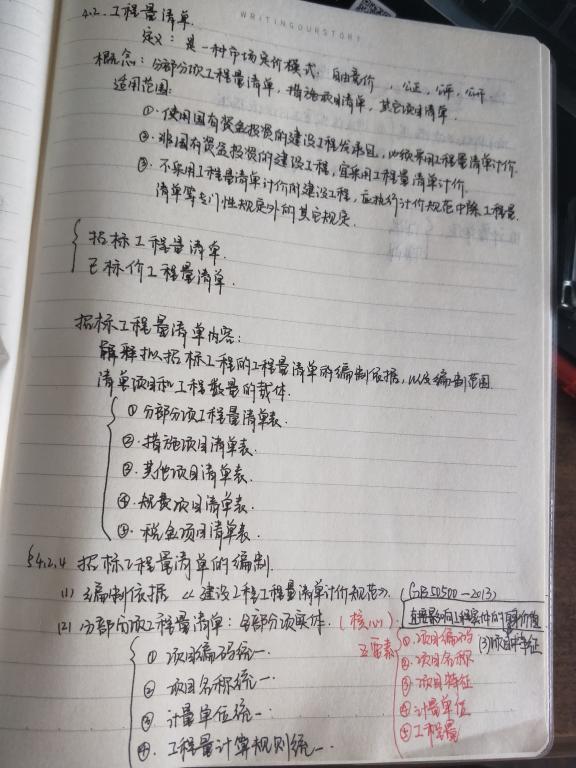 WRITINGOURSTORY
4.2. 工程量清单.
定义：是一种市场定价模式. 自由竞价, 公正, 公平, 公开
概念：分部分项工程量清单, 措施项目清单, 其它项目清单.
适用范围：
①. 使用国有资金投资的建设工程发承包, 必须采用工程量清单计价.
②. 非国有资金投资的建设工程, 宜采用工程量清单计价.
③. 不采用工程量清单计价的建设工程, 应执行计价规范中除工程量
清单等专门性规定外的其它规定.
招标工程量清单.
已标价工程量清单.
招标工程量清单内容：
解释拟招标工程的工程量清单的编制依据, 以及编制范围.
清单项目和工程数量的载体.
①分部分项工程量清单表.
②. 措施项目清单表.
③. 其他项目清单表.
④. 规费项目清单表.
⑤. 税金项目清单表.
§4.2.4 招标工程量清单的编制.
(1) 编制依据《建设工程工程量清单计价规范》. (GB50500-2013)
直接影响工程实体的自身价值
(2) 分部分项工程量清单：全部分项实体. (核心)
(3)项目特征
五要素
①项目编码统一.
②项目名称统一.
③. 计量单位统一.
④. 工程量计算规则统一.
①. 项目编码
②项目名称
③项目特征
④计量单位
⑤工程量